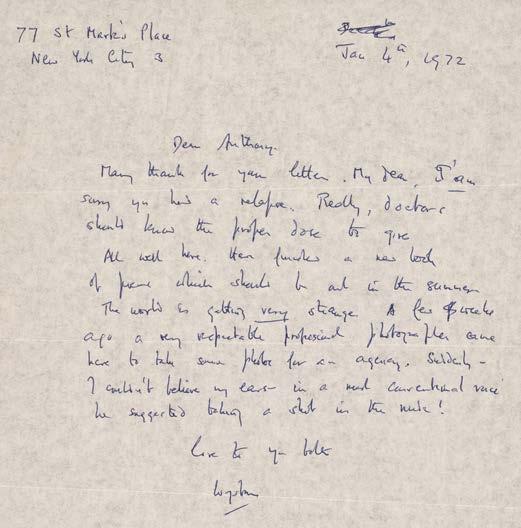 77 St Mark's Place
New York City 3
Jan 4th, 1972
Dear Anthony.
Many thanks for your letter. My dear, I am
sorry you had a relapse. Really, doctors
should know the proper dose to give
All well here. Have finished a new book
of poems which should be out in the summer
The world is getting very strange. A few weeks
ago a very respectable professional photographer came
here to take some photos for an agency. Suddenly –
I couldn't believe my ears – in a most conventional voice
he suggested taking a shot in the nude!
Love to you both
Wystan